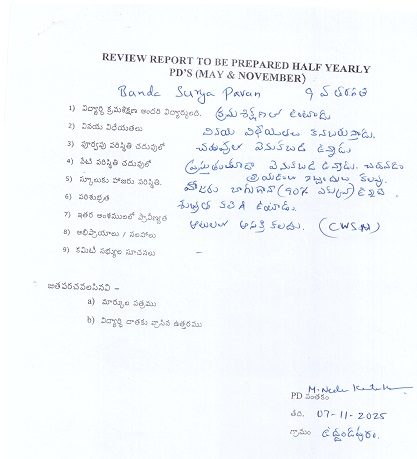 REVIEW REPORT TO BE PREPARED HALF YEARLY
PD'S (MAY & NOVEMBER)
Banda Surya Pavan 9 వ తరగతి
1) విద్యార్థి క్రమశిక్షణ అందరి విద్యార్థులది. క్రమశిక్షణగా ఉంటాడు
2) వినయ విధేయతలు వినయ విధేయతలు కనబరుస్తాడు.
3) పూర్వపు పరిస్థితి చదువులో చదువులో వెనుకబడి ఉన్నాడు
4) నేటి పరిస్థితి చదువులో ప్రస్తుతం కూడా వెనుకబడి ఉన్నాడు. చదవడం
5) స్కూలుకు హాజరు పరిస్థితి. హాజరు బాగుంది (90%
6) పరిశుభ్రత శుభ్రత కలిగి ఉంటాడు.
7) ఇతర అంశములలో ప్రావీణ్యత ఆటలలో ఆసక్తి కలదు. (CWSN)
8) అభిప్రాయాలు / సలహాలు
9) కమిటి సభ్యుల సూచనలు -
జతపరచవలసినవి –
a) మార్కుల పత్రము
b) విద్యార్థి దాతకు వ్రాసిన ఉత్తరము
PD సంతకం
తేది. 07-11-2025
గ్రామం